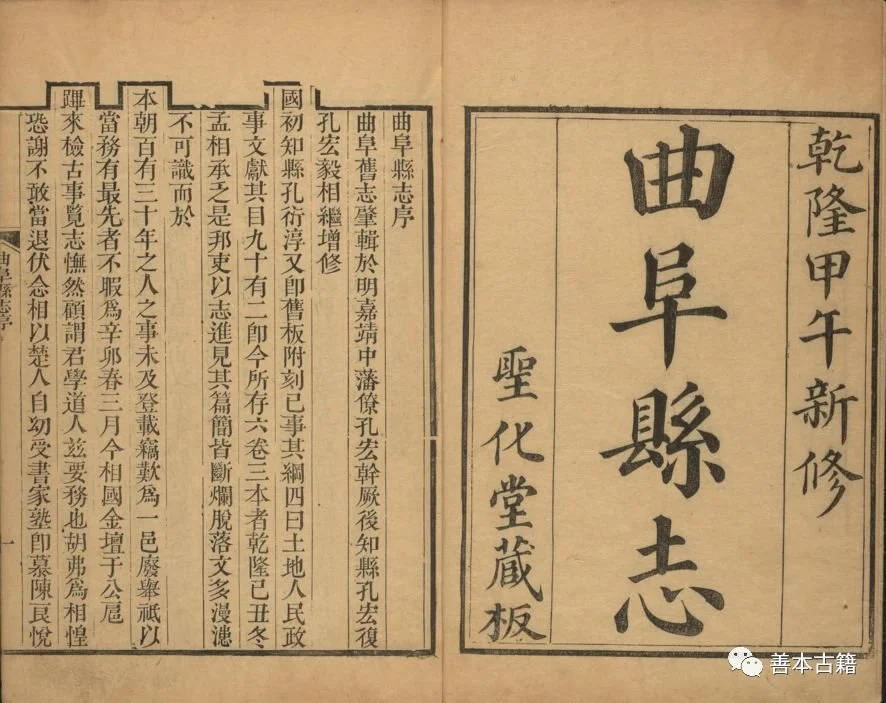 乾隆甲午新修
曲阜縣志
聖化堂藏板
曲阜縣志序
曲阜舊志肇輯於明嘉靖中藩僚孔宏幹厥後知縣孔宏復
孔宏毅相繼增修
國初知縣孔衍淳又卽舊板附刻已事其綱四曰土地人民政
事文獻其目九十有二卽今所存六卷三本者乾隆己丑冬
孟相承乏是邦吏以志進見其篇簡皆斷爛脫落文多漫漶
不可識而於
本朝百有三十年之人之事未及登載竊歎爲一邑廢舉祗以
當務有最先者不暇爲辛卯春三月今相國金壇于公扈
蹕來檢古事覧志憮然顧謂君學道人茲要務也胡弗爲相惶
恐謝不敢當退伏念相以楚人自幼受書家塾卽慕陳良悅
曲阜縣志序
一
善本古籍